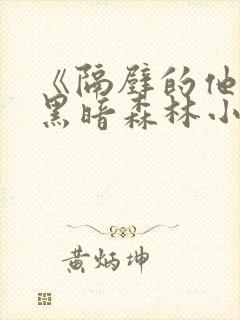 《隔壁的他
黑暗森林小
黄炳坤